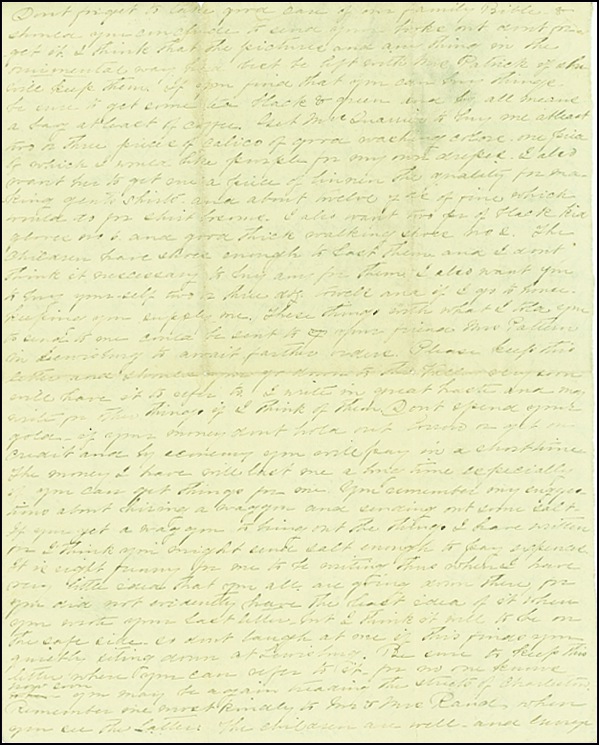 Dont forget to take good care of our family Bible &
should you conclude to send your books out dont for-
get it. I think that the pictures and any thing in the
ornimental way had best be left with Mrs Patrick if she
will keep them. If you find that you can buy things
be sure to get some tea black & green and by all means
a bag at least of coffee. Get Mrs to buy me at least
two or three pieces of calico of good washing colors one piece
of which I would like purple for my own dresses. I also
want her to get me a piece of linnen the quality for ma-
king gents shirts and about twelve yds of fine which
would do for shirt bosoms. I also want two pr of black kid
gloves no 6. and good thick walking shoes no 2. The
children have shoes enough to last them and I dont
think it necessary to buy any for them. I also want you
to buy yourself two or three doz. towels and if I go to house-
keeping you supply me. These things with what I told you
to send to me could be sent to your friend Mrs Patton
in Lewisburg to await farther orders. Please keep this
letter and should you go down to the you
will have it to refer to. I write in great haste and may
write for other things if I think of them. Dont spend your
gold - if your money dont hold out or get on
credit and by economy you will pay in a short time.
The money I have will last me a long time especially
if you can get things for me. You remember my sugges-
tions about hiring a waggon and sending out some salt.
If you get a waggon to bring out the things I have written
for I think you might send salt enough to pay expenses.
It is right funny for me to be writing thus when I have
very little idea that you all are going down there for
you did not evidently have the least idea of it when
you wrote your last letter, but I think it well to be on
the safe side so dont laugh at me if this finds you
quietly siting down at Lewisburg. Be sure to keep this
letter where you can refer to it for no one knows
how soon you may be again treading the streets of Charleston.
Remember me most kindly to Mr & Mrs Rand when
you see the latter. The children are well and George